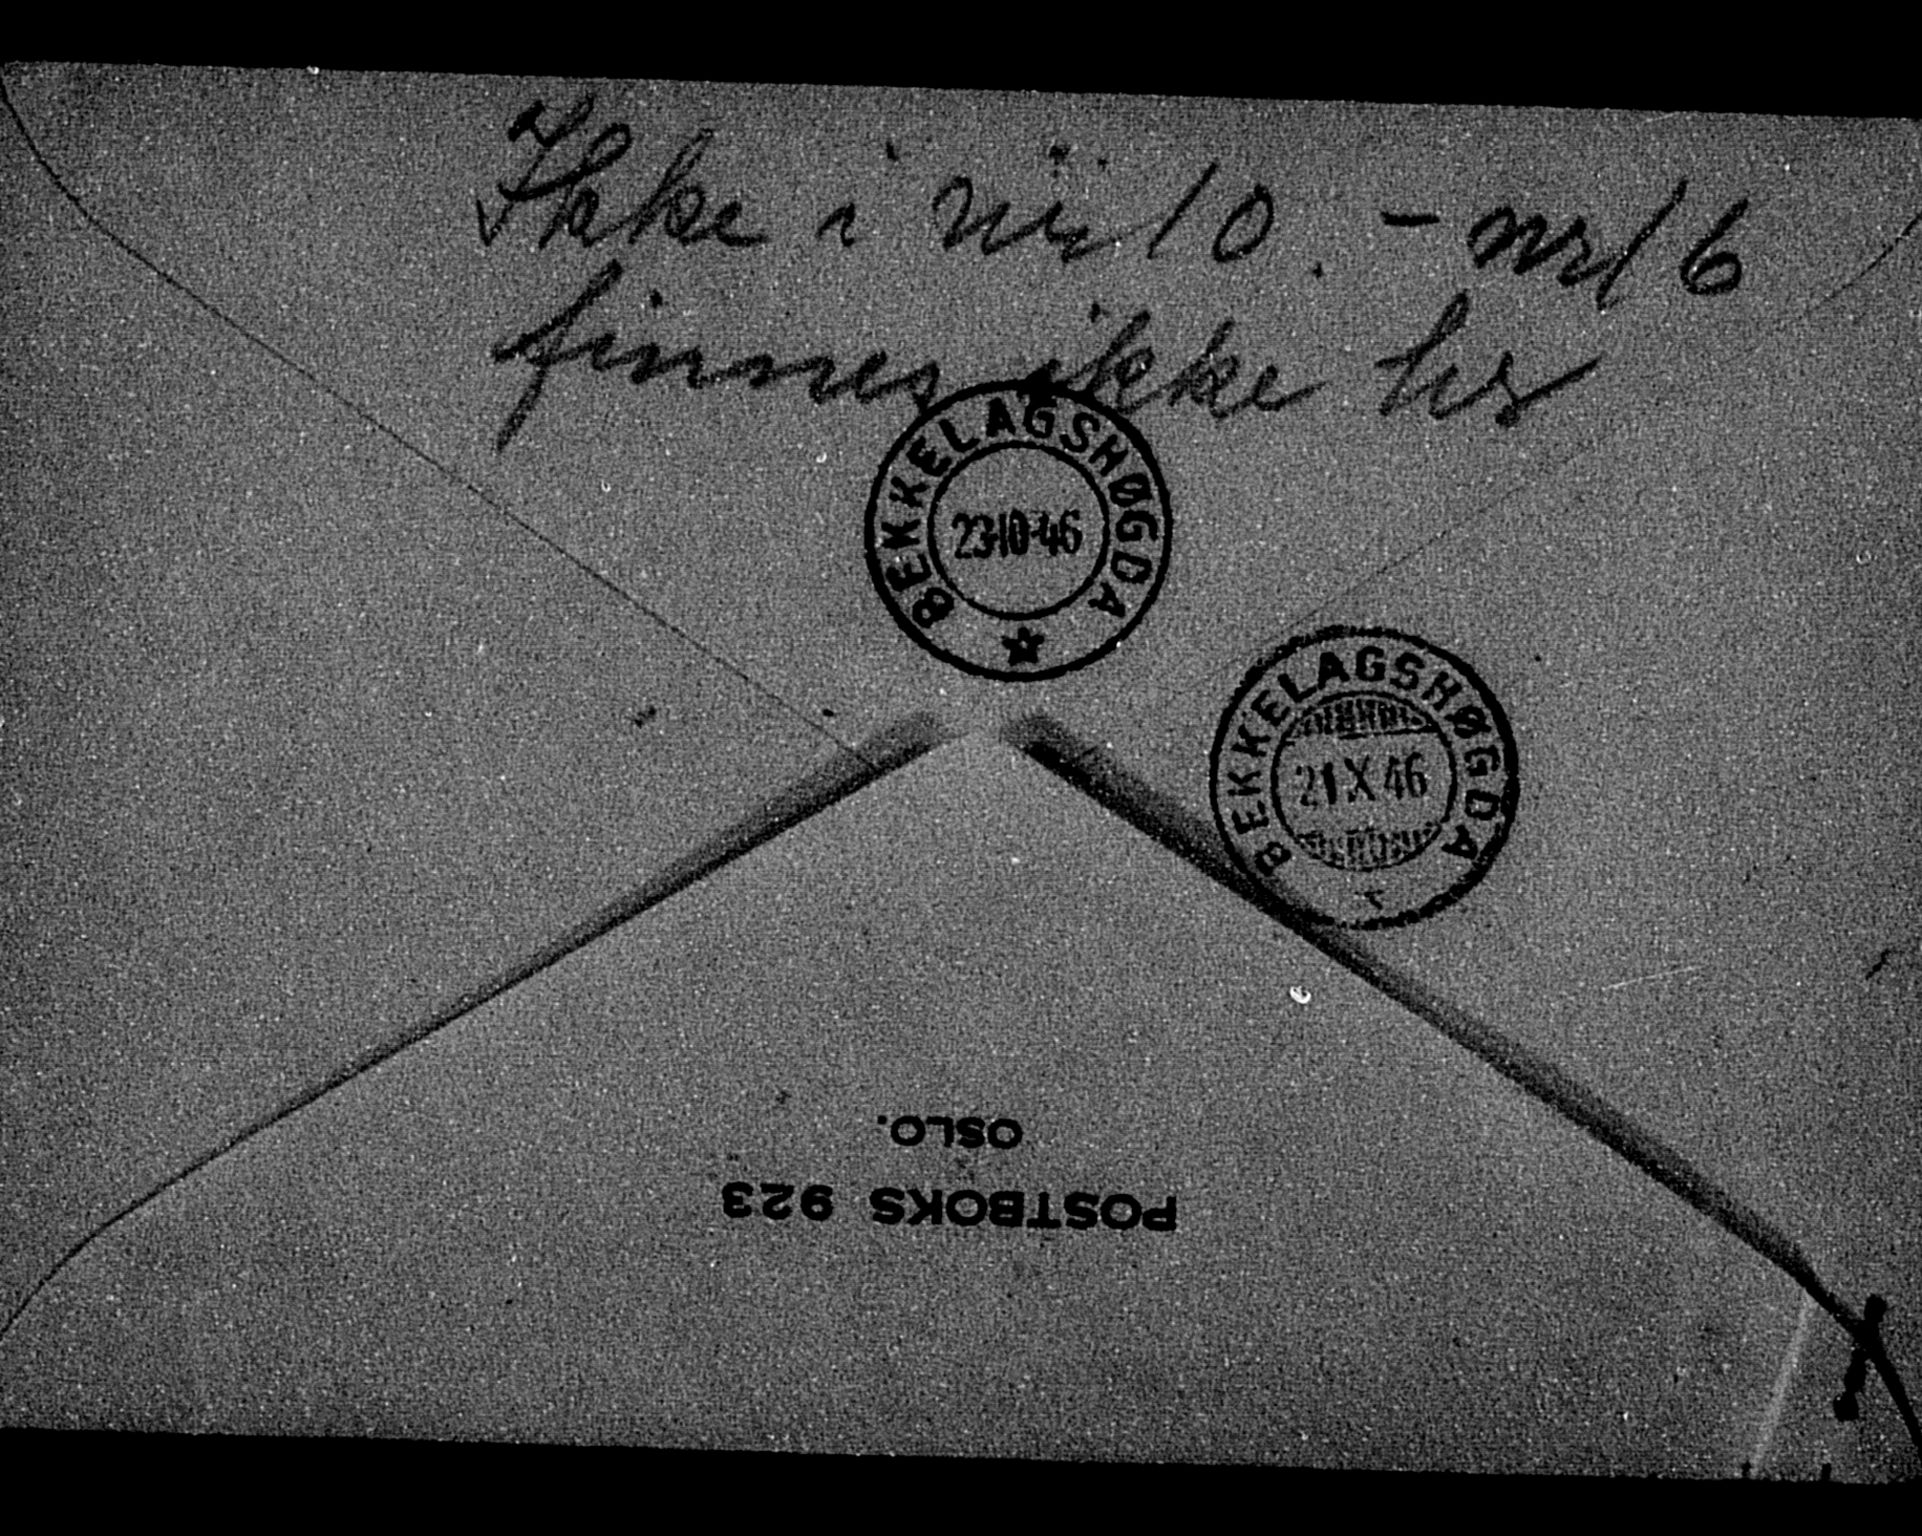 Ikke i nr 10. - nr 16
finnes ikke her
BEKKELAGSHØGDA
23-10-46
BEKKELAGSHØGDA
21 X 46
POSTBOKS 923
OSLO.